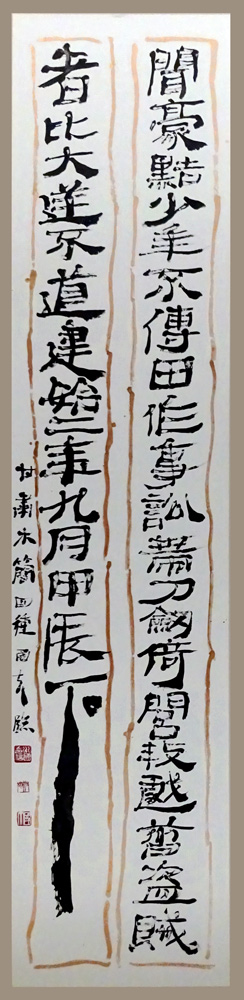 間豪黠少年不傳田作事訟帶刀劒倚閭戲盜賊
者比大逆不道建始二年九月甲辰下
甘肅木簡四種